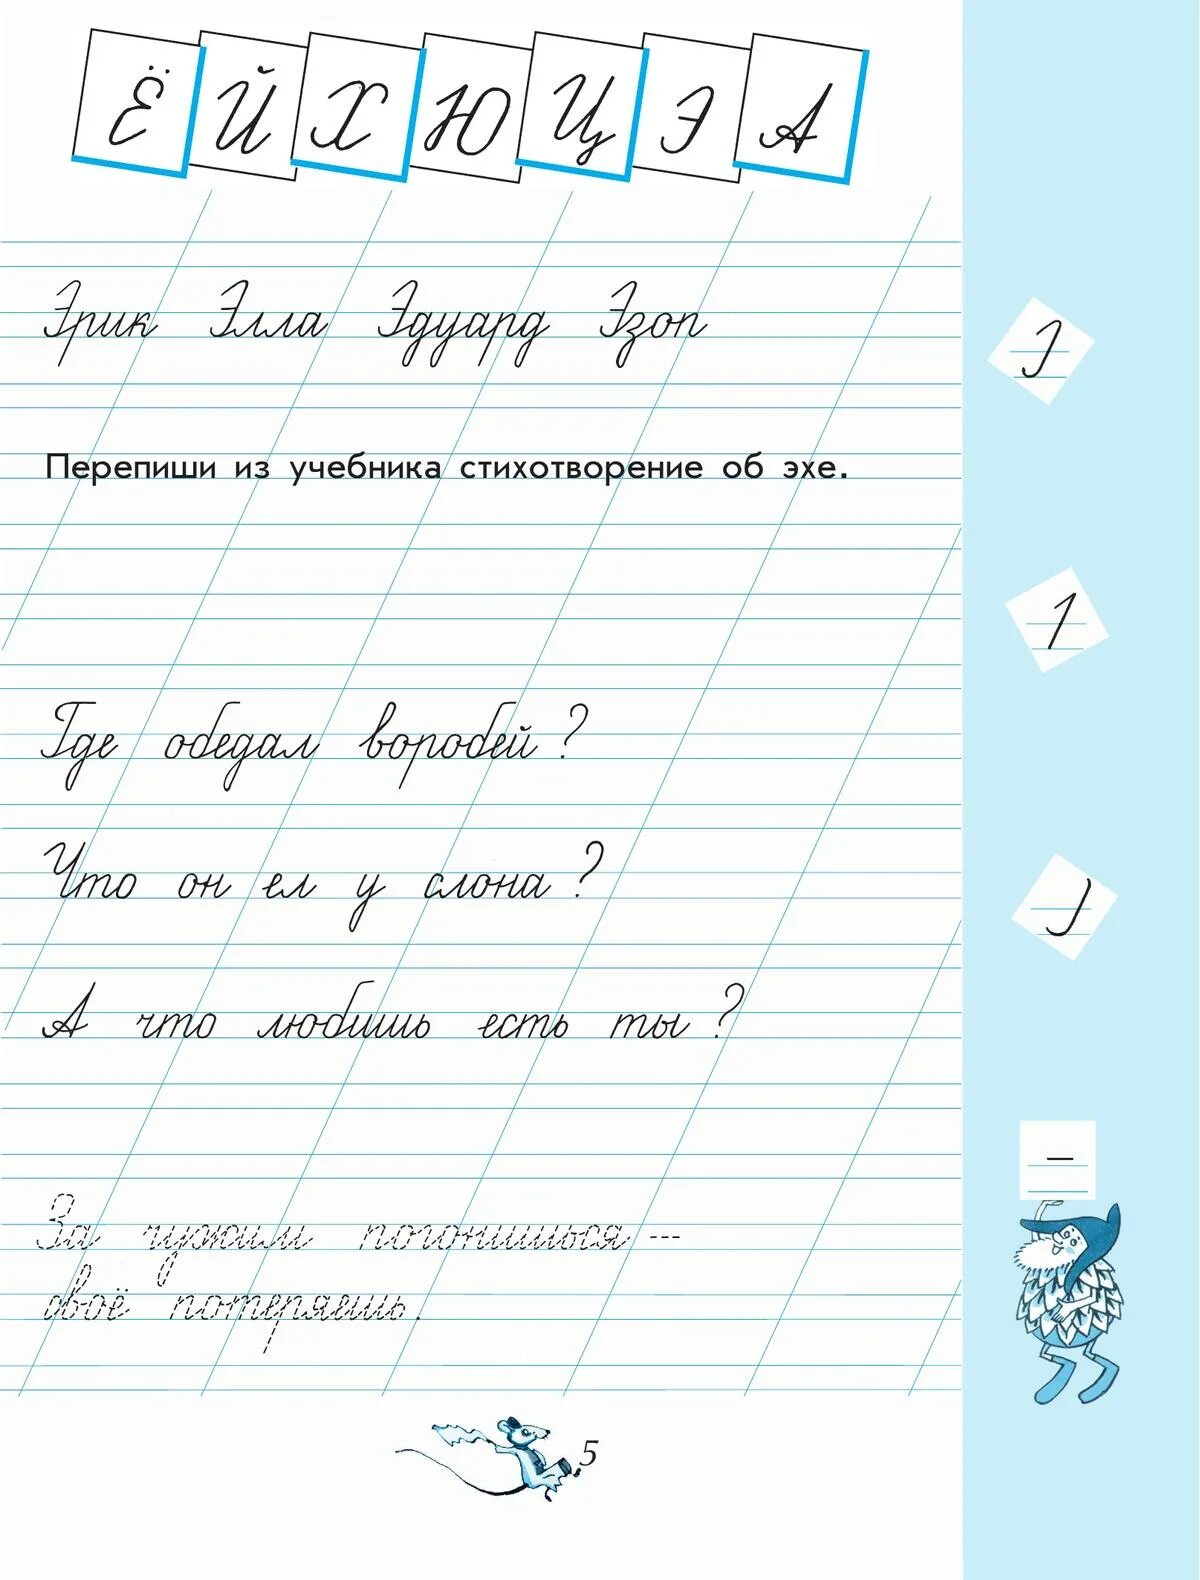 Ё Й Х Ю Ц Э А
Эрик Элла Эдуард Эзоп
Перепиши из учебника стихотворение об эхе.
Где обедал воробей ?
Что он ел у слона ?
А что любишь есть ты ?
За чужим погонишься —
своё потеряешь.
5